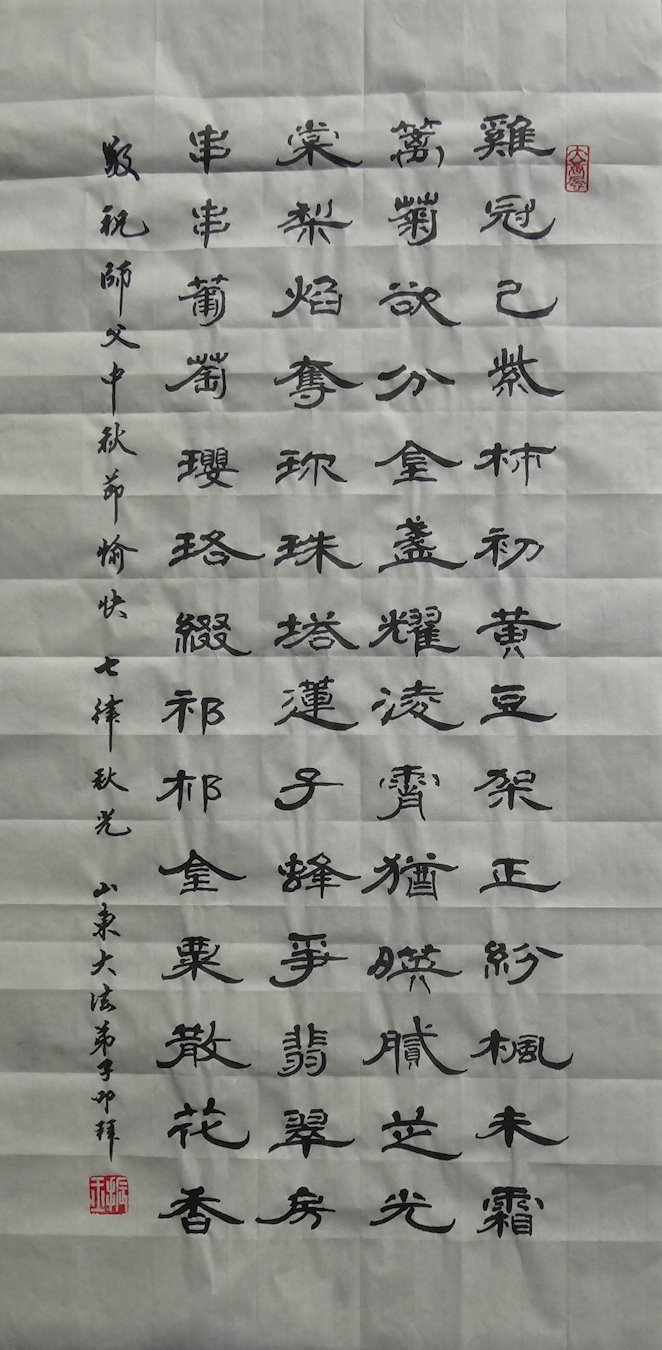 雞冠己紫柿初黃豆架正紛楓未霜
籬菊欲分金盞耀凌霄猶暎芝光
棠梨焰奪珎珠塔蓮子蜂爭翡翠房
串串葡萄瓔珞綴祁祁金粟散花香
敬祝師父中秋節愉快 七律秋光 山東大法弟子叩拜